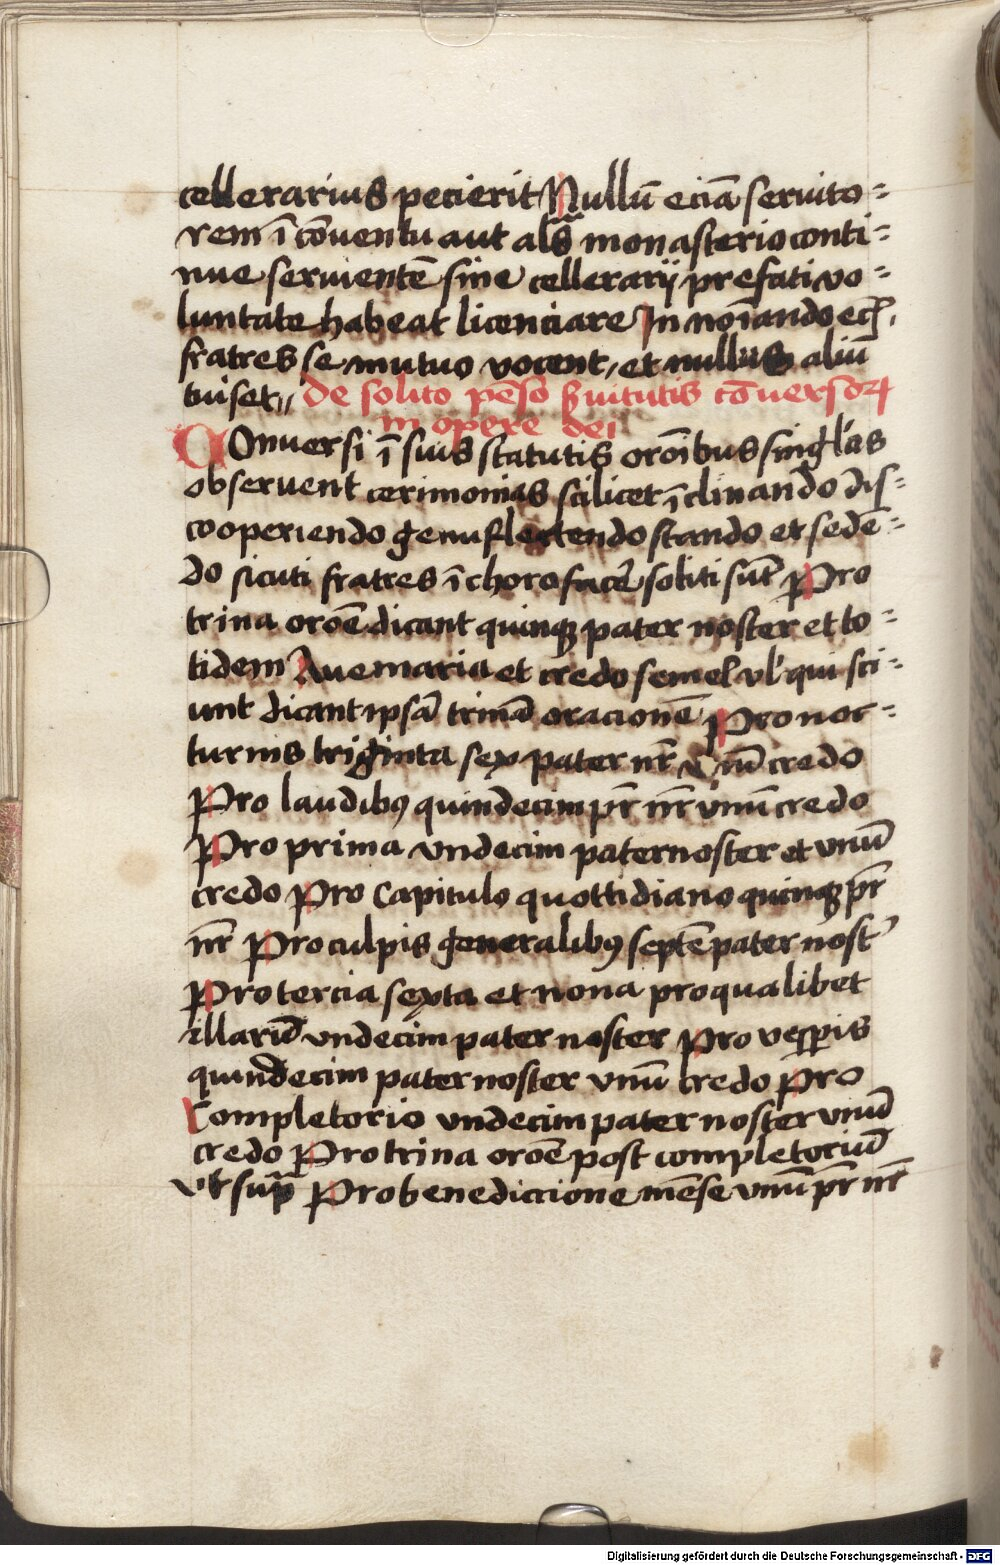 cellerarius pecierit Nullū eciā seruito=
rem ī cōuentu aut als̄ monasterio conti=
nue seruientē sine cellerarij prefati vo=
luntate habeat licenciare In noīando
fratres se mutuo vocent, et nullus aliū
tuiset,, de solito pēso ẜuitutis cōuersorꝝ
in opere dei
COnuersi ī suis statutis orōībus singl'as
obseruent cerimonias scilicet īclinando dis=
cooperiendo genuflectendo stando et sedē=
do sicuti fratres ī choro facē soliti sūt Pro
trina orōe dicant quinqꝫ pater noster et to=
tidem Aue maria et credo semel vl' qui sci=
unt dicant ipsā trinā oracionē Pro noc=
turnis triginta sex pater nr̄ credo
Pro laudibꝰ quindecim pr̄ nr̄ vnū credo
Pro prima vndecim pater noster et vnū
credo Pro Capitulo quottidiano quinqꝫ pr̄
nr̄ Pro culpis generalibꝰ septē pater nost'
Pro tercia sexta et nona pro qualibet
illarū vndecim pater noster Pro vesꝑis
quindecim pater noster vnū credo Pro
Completorio vndecim pater noster vnū
credo Pro trina orōe post completoriū
vt sup̄ Pro benediccione mēse vnū pr̄ nr̄
Digitalisierung gefördert durch die Deutsche Forschungsgemeinschaft - DFG